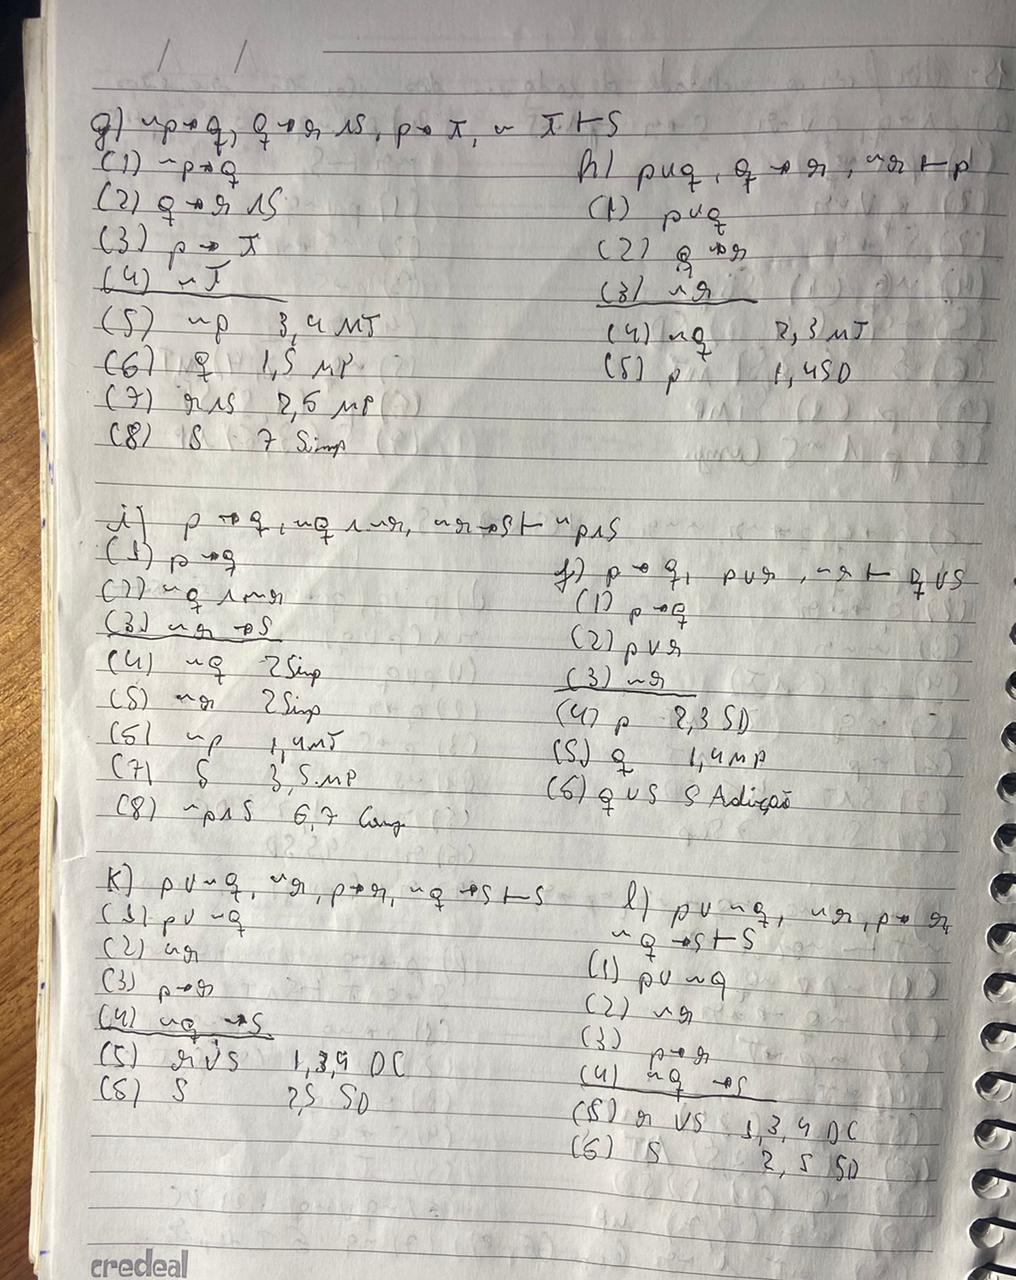 / /
g) ~p→q, q→r∧S, p→T, ~T⊢S
(1) ~p→q
(2) q→r∧S
(3) p→T
(4) ~T
(5) ~p 3,4 MT
(6) q 1,5 MP
(7) r∧S 2,6 MP
(8) S 7 Simp
h) p∨q, q→r, ~r⊢p
(1) p∨q
(2) q→r
(3) ~r
(4) ~q 2,3 MT
(5) p 1,4 SD
i) p→q, ~q∧~r, ~r→S⊢~p∧S
(1) p→q
(2) ~q∧~r
(3) ~r→S
(4) ~q 2Simp
(5) ~r 2Simp
(6) ~p 1,4 MT
(7) S 3,5 MP
(8) ~p∧S 6,7 Conj
j) p→q, p∨r, ~r⊢q∨S
(1) p→q
(2) p∨r
(3) ~r
(4) p 2,3 SD
(5) q 1,4 MP
(6) q∨S 5 Adição
K) p∨~q, ~r, p→r, ~q→S⊢S
(1) p∨~q
(2) ~r
(3) p→r
(4) ~q→S
(5) r∨S 1,3,4 DC
(6) S 2,5 SD
l) p∨~q, ~r, p→r,
~q→S⊢S
(1) p∨~q
(2) ~r
(3) p→r
(4) ~q→S
(5) r∨S 1,3,4 DC
(6) S 2,5 SD
credeal